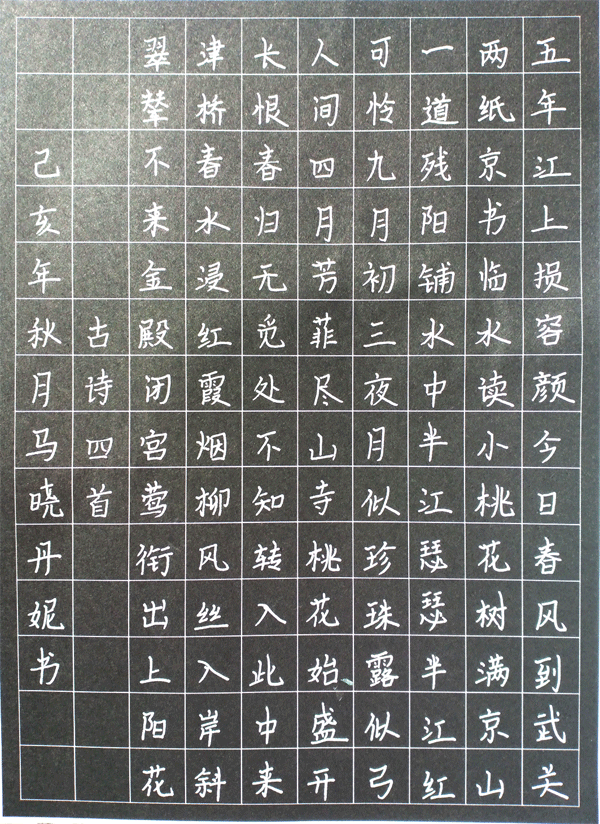 五年江上损容颜今日春风到武关
两纸京书临水读小桃花树满京山
一道残阳铺水中半江瑟瑟半江红
可怜九月初三夜月似珍珠露似弓
人间四月芳菲尽山寺桃花始盛开
长恨春归无觅处不知转入此中来
津桥春水浸红霞烟柳风丝入岸斜
翠辇不来金殿闭宫莺衔出上阳花
古诗四首
己亥年秋月马晓丹妮书